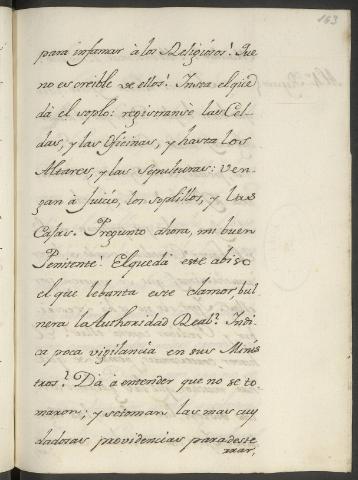 163
para infamar à los Religiósos! Que
no es creible de ellos! Insta el que
dà el soplo: registranse las Cel-
das, y las Oficinas, y hasta los
Altares, y las sepulturas: ven-
gan à Juicio, los soplillos, y las
Casas. Pregunto ahora, mi buen
Penitente! El que dà este abiso
el que lebanta este clamor, bul
nera la Authoridad Real? Indi
ca poca vigilancia en sus Minis
tros? Dà à entender que no se to
maron; y se toman las mas cuy
dadosas providencias para deste
rrar,